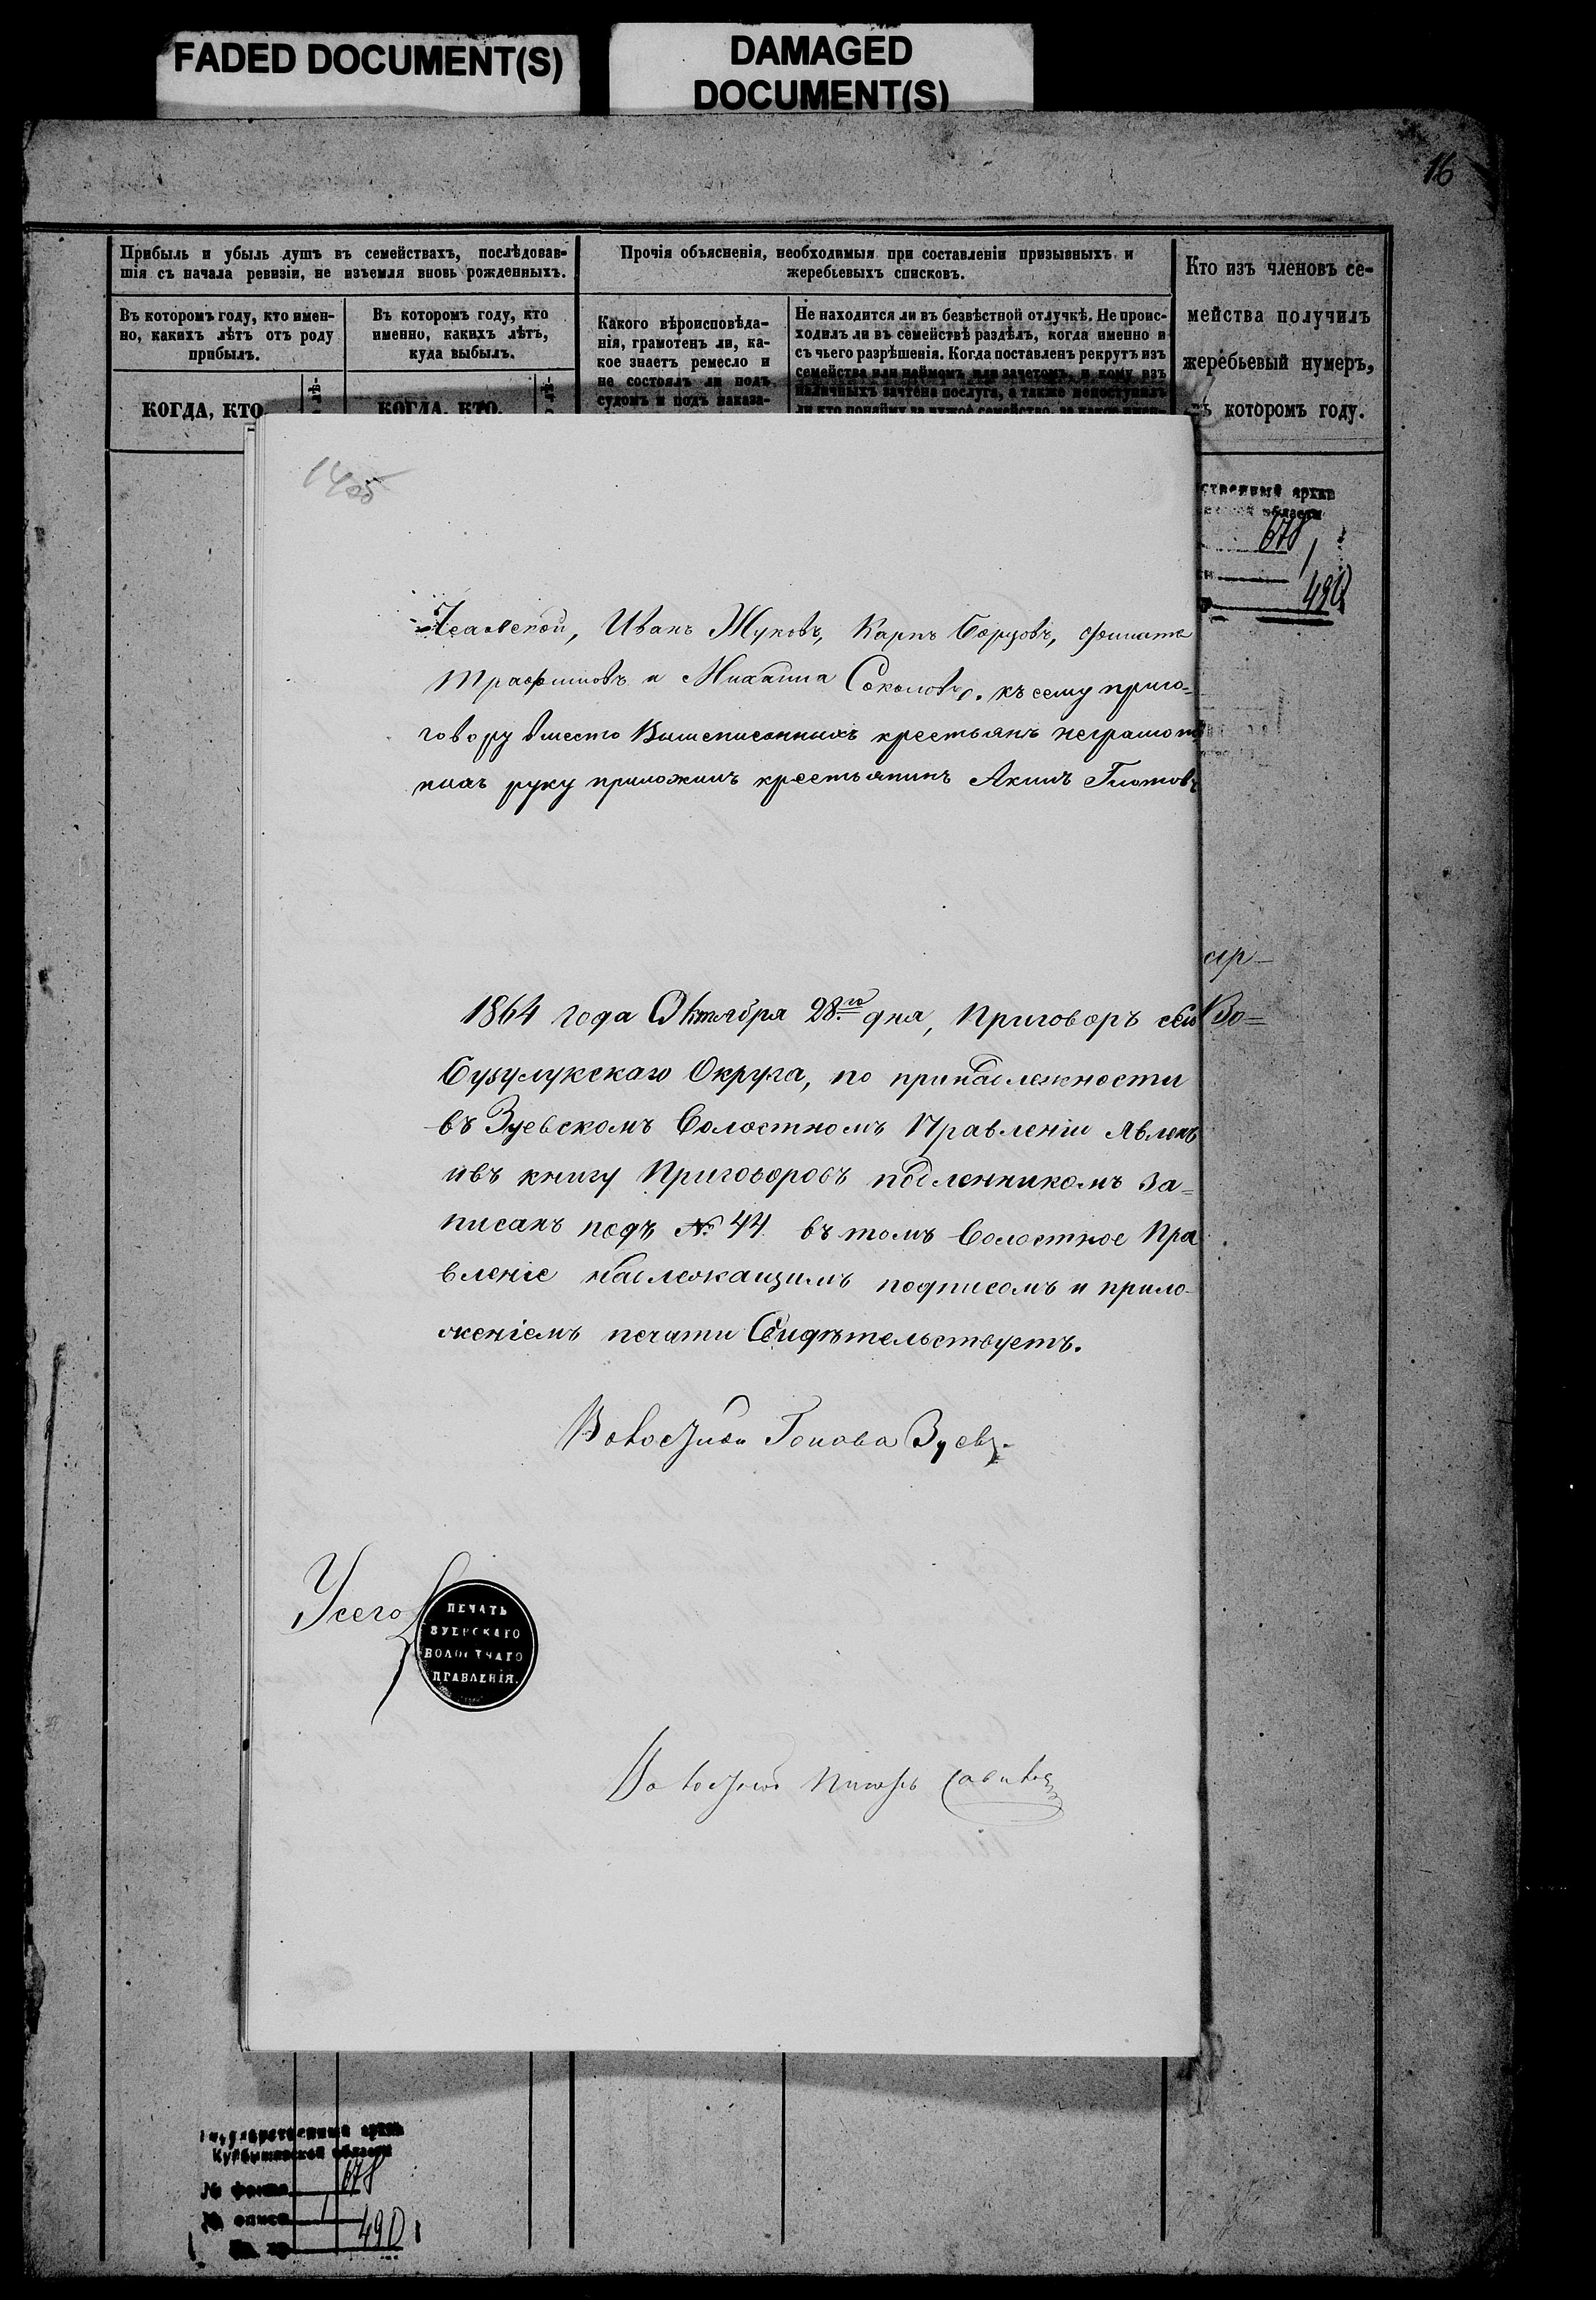 FADED DOCUMENT(S)
DAMAGED
DOCUMENT(S)
16
Прибыль и убыль душъ въ семействахъ, послѣдовав-
шія съ начала ревизіи, не изъемля вновь рожденныхъ.
Прочія объясненія, необходимыя при составленіи призывныхъ и
жеребьевыхъ списковъ.
Кто изъ членовъ се-
мейства получилъ
жеребьевый нумеръ,
въ котором году.
Въ которомъ году, кто имен-
но, какихъ лѣтъ отъ роду
прибылъ.
Въ которомъ году, кто
именно, какихъ лѣтъ,
куда выбылъ.
Какого вѣроисповѣда-
нія, грамотенъ ли, ка-
кое знаетъ ремесло и
не состоялъ ли подъ
судомъ и подъ наказа-
Не находится ли въ безвѣстной отлучкѣ. Не проис-
ходилъ ли въ семействѣ раздѣлъ, когда именно и
съ чьего разрѣшенія. Когда поставленъ рекрутъ изъ
семейства или наймомъ или зачетомъ, и кому изъ
наличныхъ зачтена послуга, а также непоступилъ
КОГДА, КТО.
КОГДА, КТО.
ственный архив
области
678
1
490
Иванъ Жуковъ, Карпъ Борзовъ,
Трафимовъ и Михаила Соколовъ. къ сему приго-
говору вместо Вышеписанныхъ крестьянъ неграмот
ныхъ руку приложилъ крестьянинъ Акимъ Глотовъ
ар-
Во=
1864 года Октября 28го дня, Приговоръ сей
Бузулукскаго Округа, по принадлежности
въ Зуевскомъ Волостномъ Правленіи явленъ
ивъ книгу Приговоровъ подленникомъ за=
писанъ подъ № 44 въ томъ Волостное Пра
вленіе надлежащимъ подписомъ и прило-
женіемъ печати Свидѣтельствуетъ.
Волостной Голова Зуевъ
ПЕЧАТЬ
ЗУЕВСКАГО
ВОЛОСТНАГО
ПРАВЛЕНІЯ.
Волостной Писарь
Государственный архив
Куйбышевской области
№ фонда 678
№ описи 1
490